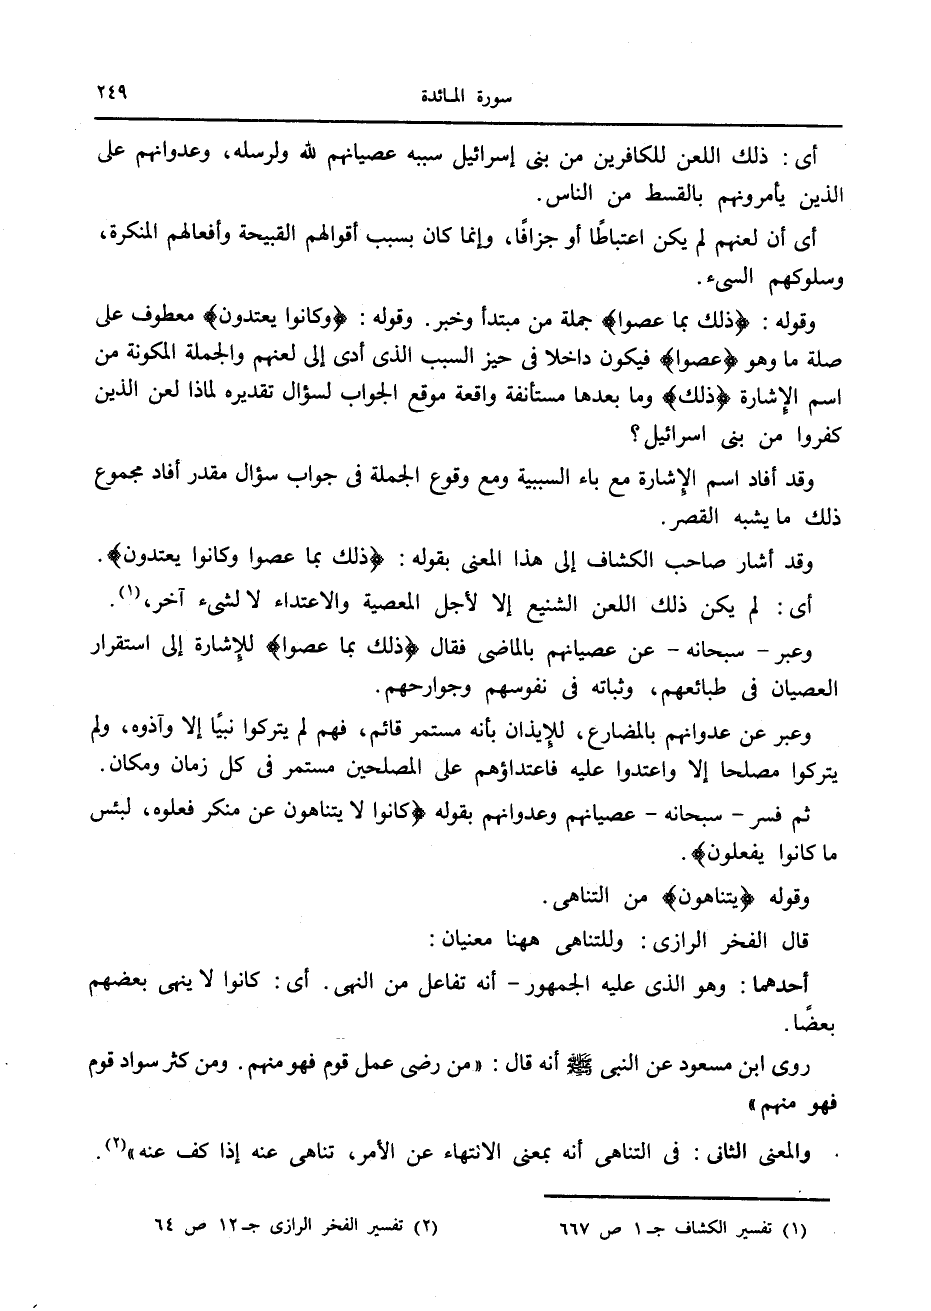 سورة المائدة ٢٤٩
أى : ذلك اللعن للكافرين من بنى إسرائيل سببه عصيانهم لله ولرسله، وعدوانهم على
الذين يأمرونهم بالقسط من الناس.
أى أن لعنهم لم يكن اعتباطًا أو جزافًا، وإنما كان بسبب أقوالهم القبيحة وأفعالهم المنكرة،
وسلوكهم السىء.
وقوله : ﴿ذلك بما عصوا﴾ جملة من مبتدأ وخبر. وقوله : ﴿وكانوا يعتدون﴾ معطوف على
صلة ما وهو ﴿عصوا﴾ فيكون داخلا فى حيز السبب الذى أدى إلى لعنهم والجملة المكونة من
اسم الإشارة ﴿ذلك﴾ وما بعدها مستأنفة واقعة موقع الجواب لسؤال تقديره لماذا لعن الذين
كفروا من بنى اسرائيل؟
وقد أفاد اسم الإشارة مع باء السببية ومع وقوع الجملة فى جواب سؤال مقدر أفاد مجموع
ذلك ما يشبه القصر.
وقد أشار صاحب الكشاف إلى هذا المعنى بقوله : ﴿ذلك بما عصوا وكانوا يعتدون﴾.
أى : لم يكن ذلك اللعن الشنيع إلا لأجل المعصية والاعتداء لا لشىء آخر،(١).
وعبر - سبحانه - عن عصيانهم بالماضى فقال ﴿ذلك بما عصوا﴾ للإشارة إلى استقرار
العصيان فى طبائعهم، وثباته فى نفوسهم وجوارحهم.
وعبر عن عدوانهم بالمضارع، للإيذان بأنه مستمر قائم، فهم لم يتركوا نبيًا إلا وآذوه، ولم
يتركوا مصلحا إلا واعتدوا عليه فاعتداؤهم على المصلحين مستمر فى كل زمان ومكان.
ثم فسر - سبحانه - عصيانهم وعدوانهم بقوله ﴿كانوا لا يتناهون عن منكر فعلوه، لبئس
ما كانوا يفعلون﴾.
وقوله ﴿يتناهون﴾ من التناهى.
قال الفخر الرازى : وللتناهى ههنا معنيان :
أحدهما : وهو الذى عليه الجمهور - أنه تفاعل من النهى. أى : كانوا لا ينهى بعضهم
بعضًا.
روى ابن مسعود عن النبى ﷺ أنه قال : «من رضى عمل قوم فهو منهم. ومن كثر سواد قوم
فهو منهم»
والمعنى الثانى : فى التناهى أنه بمعنى الانتهاء عن الأمر، تناهى عنه إذا كف عنه»(٢).
(١) تفسير الكشاف جـ ١ ص ٦٦٧ (٢) تفسير الفخر الرازى جـ ١٢ ص ٦٤